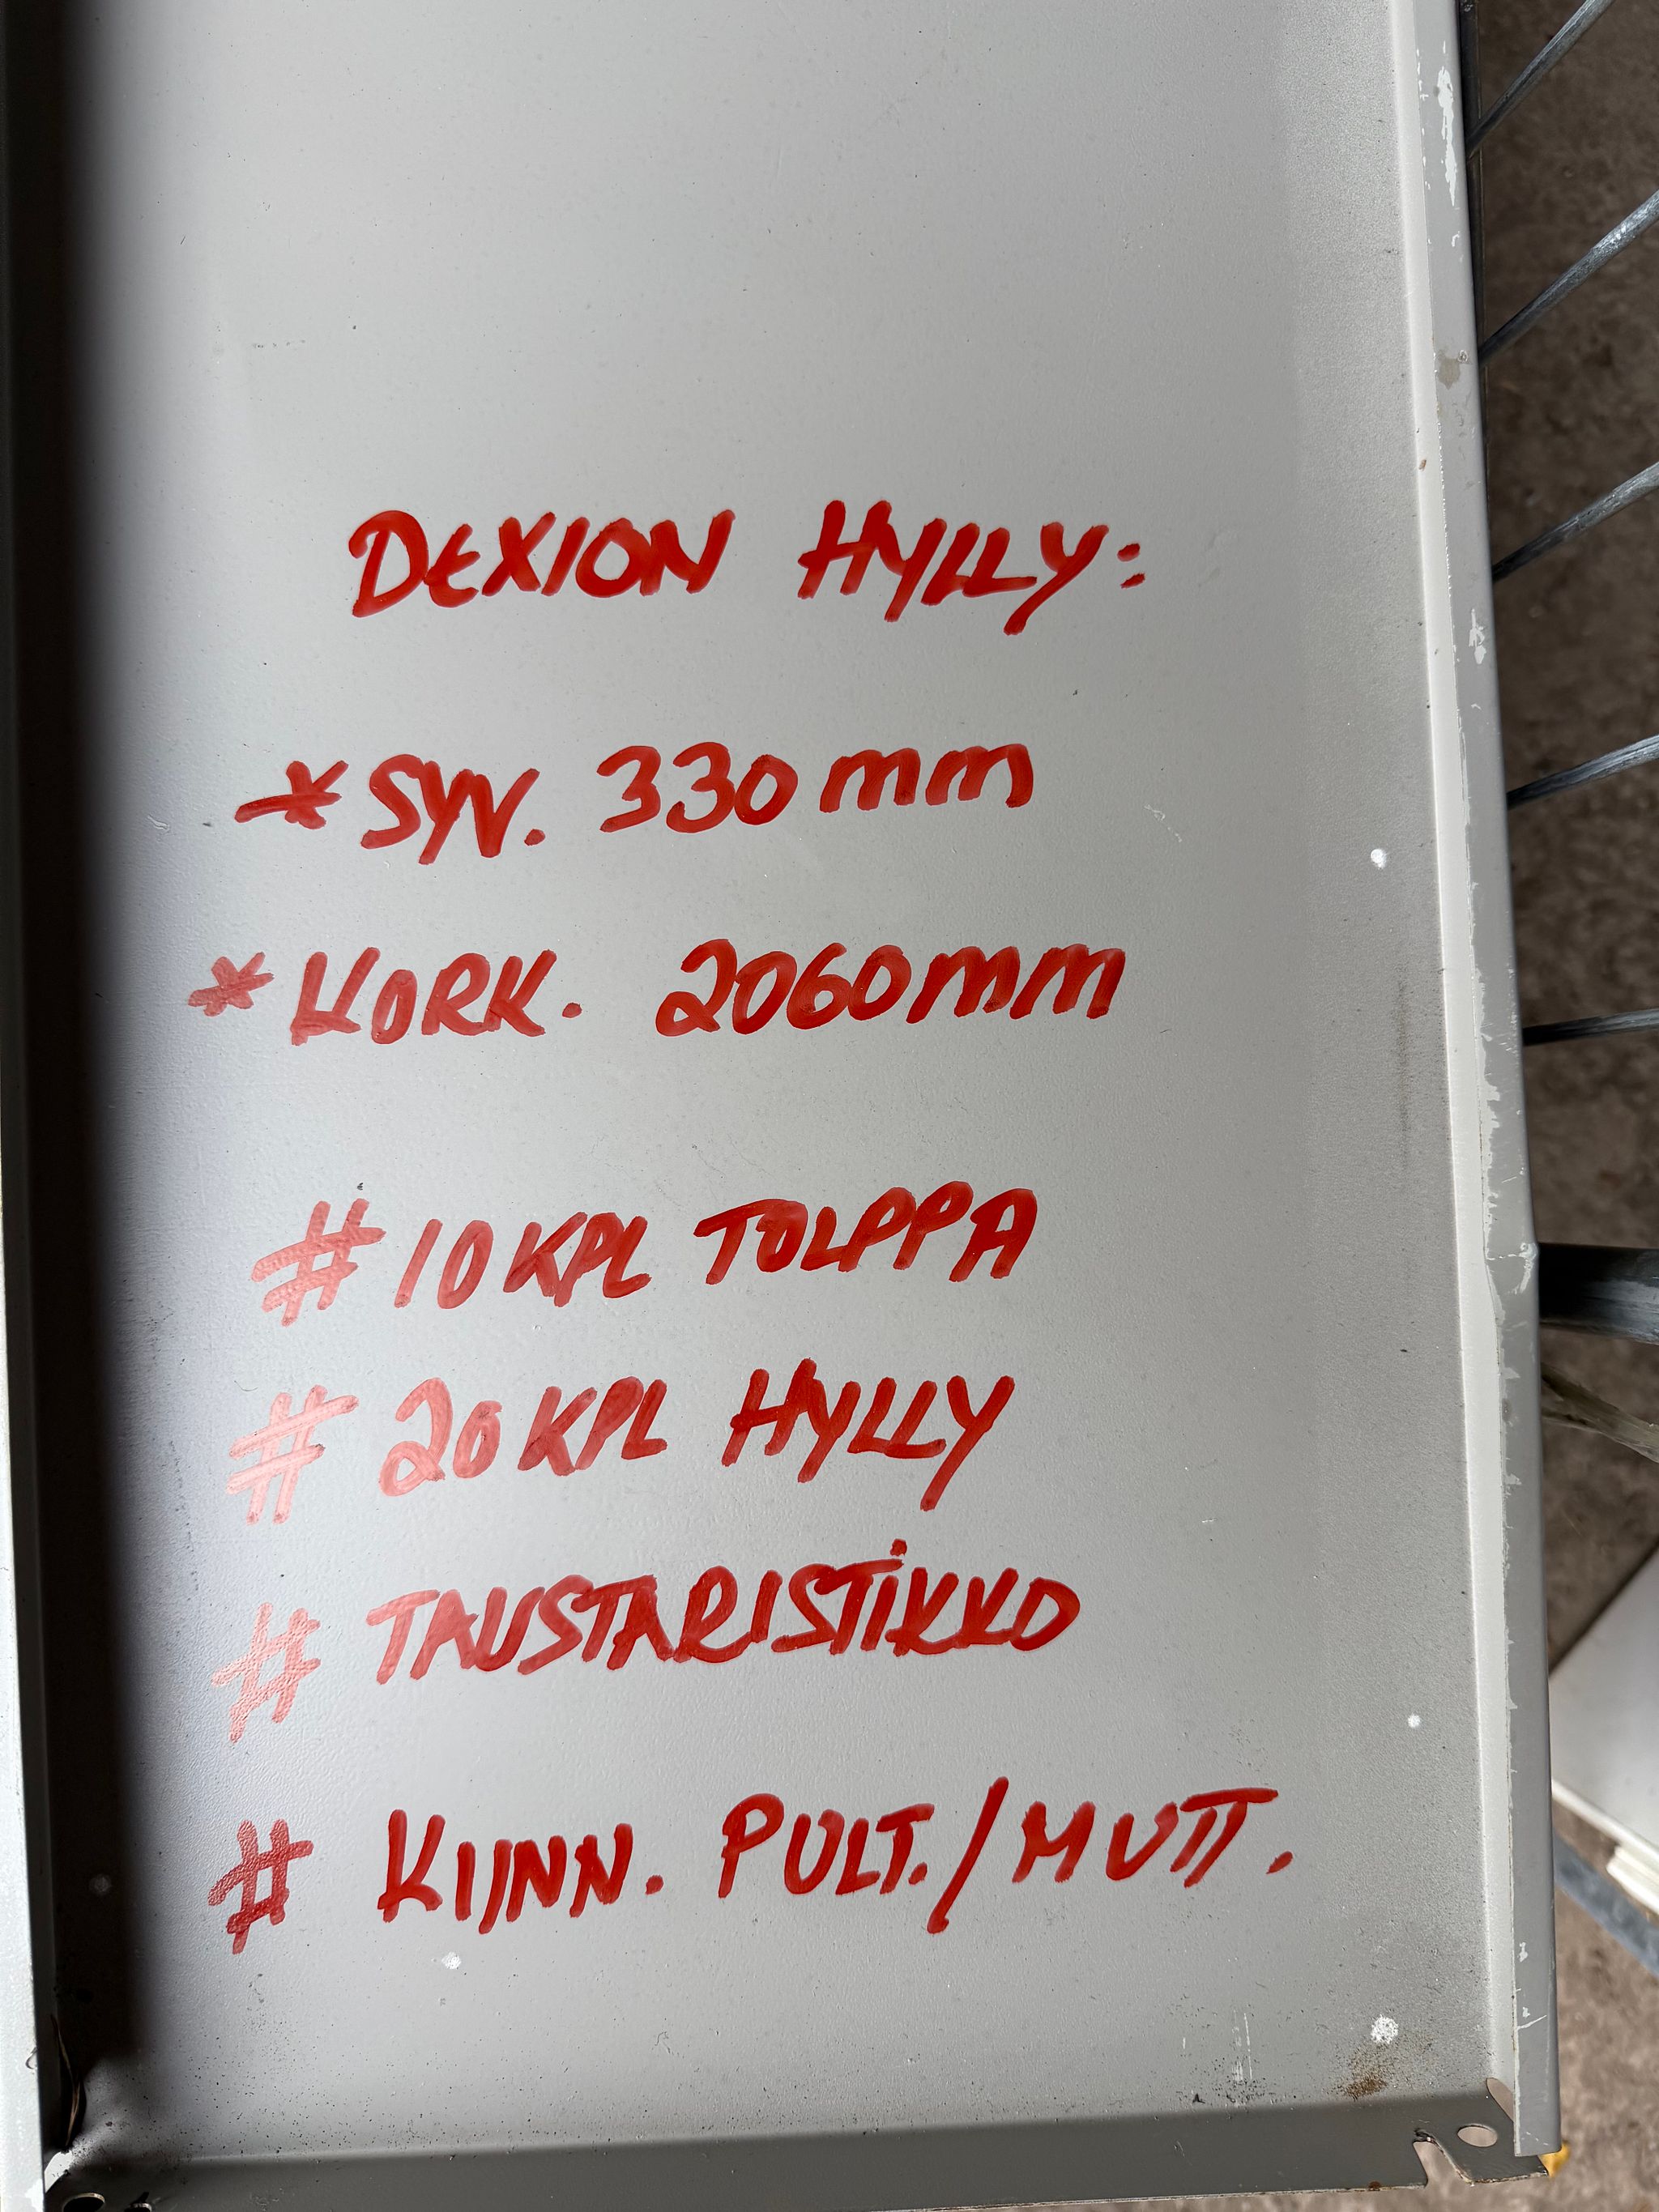 DEXION HYLLY:
* SYV. 330 mm
* KORK. 2060mm
# 10 KPL TOLPPA
# 20 KPL HYLLY
# TAUSTARISTIKKO
# KIINN. PULT./MUTT.